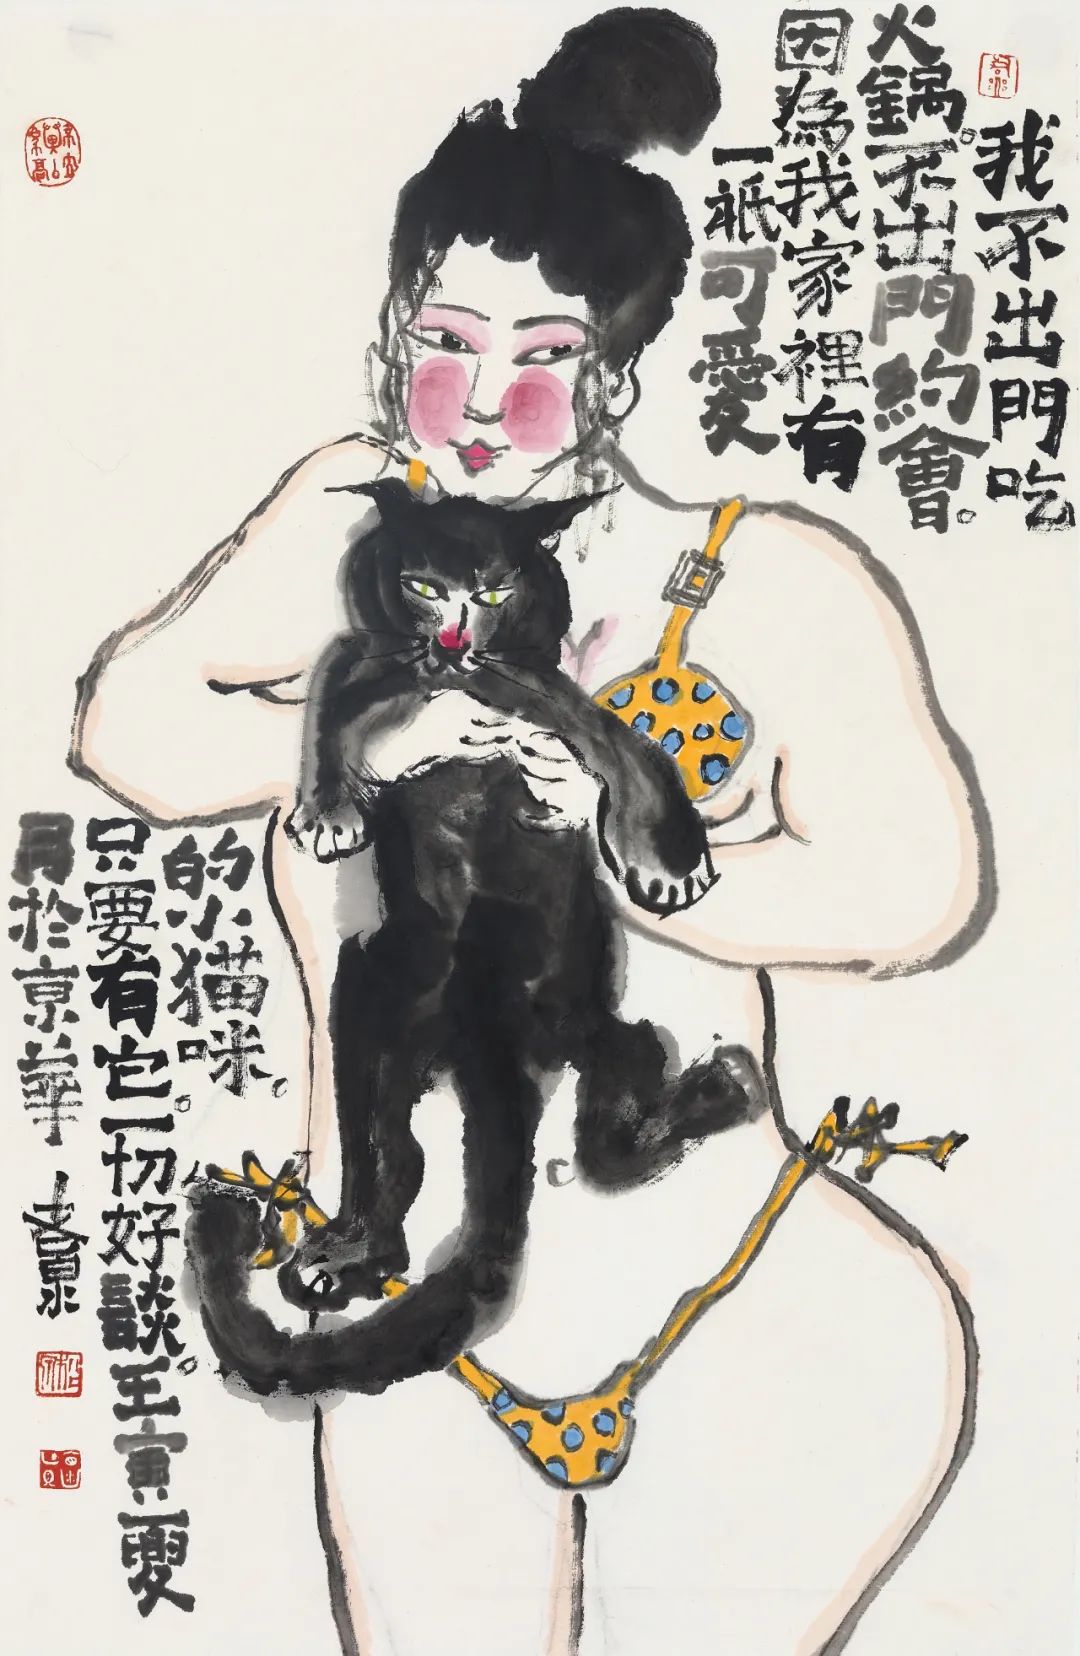 我不出門吃
火鍋。不出門約會。
因為我家裡有
一祇可愛
的小猫咪。
只要有它。一切好談。壬寅夏
月於京華